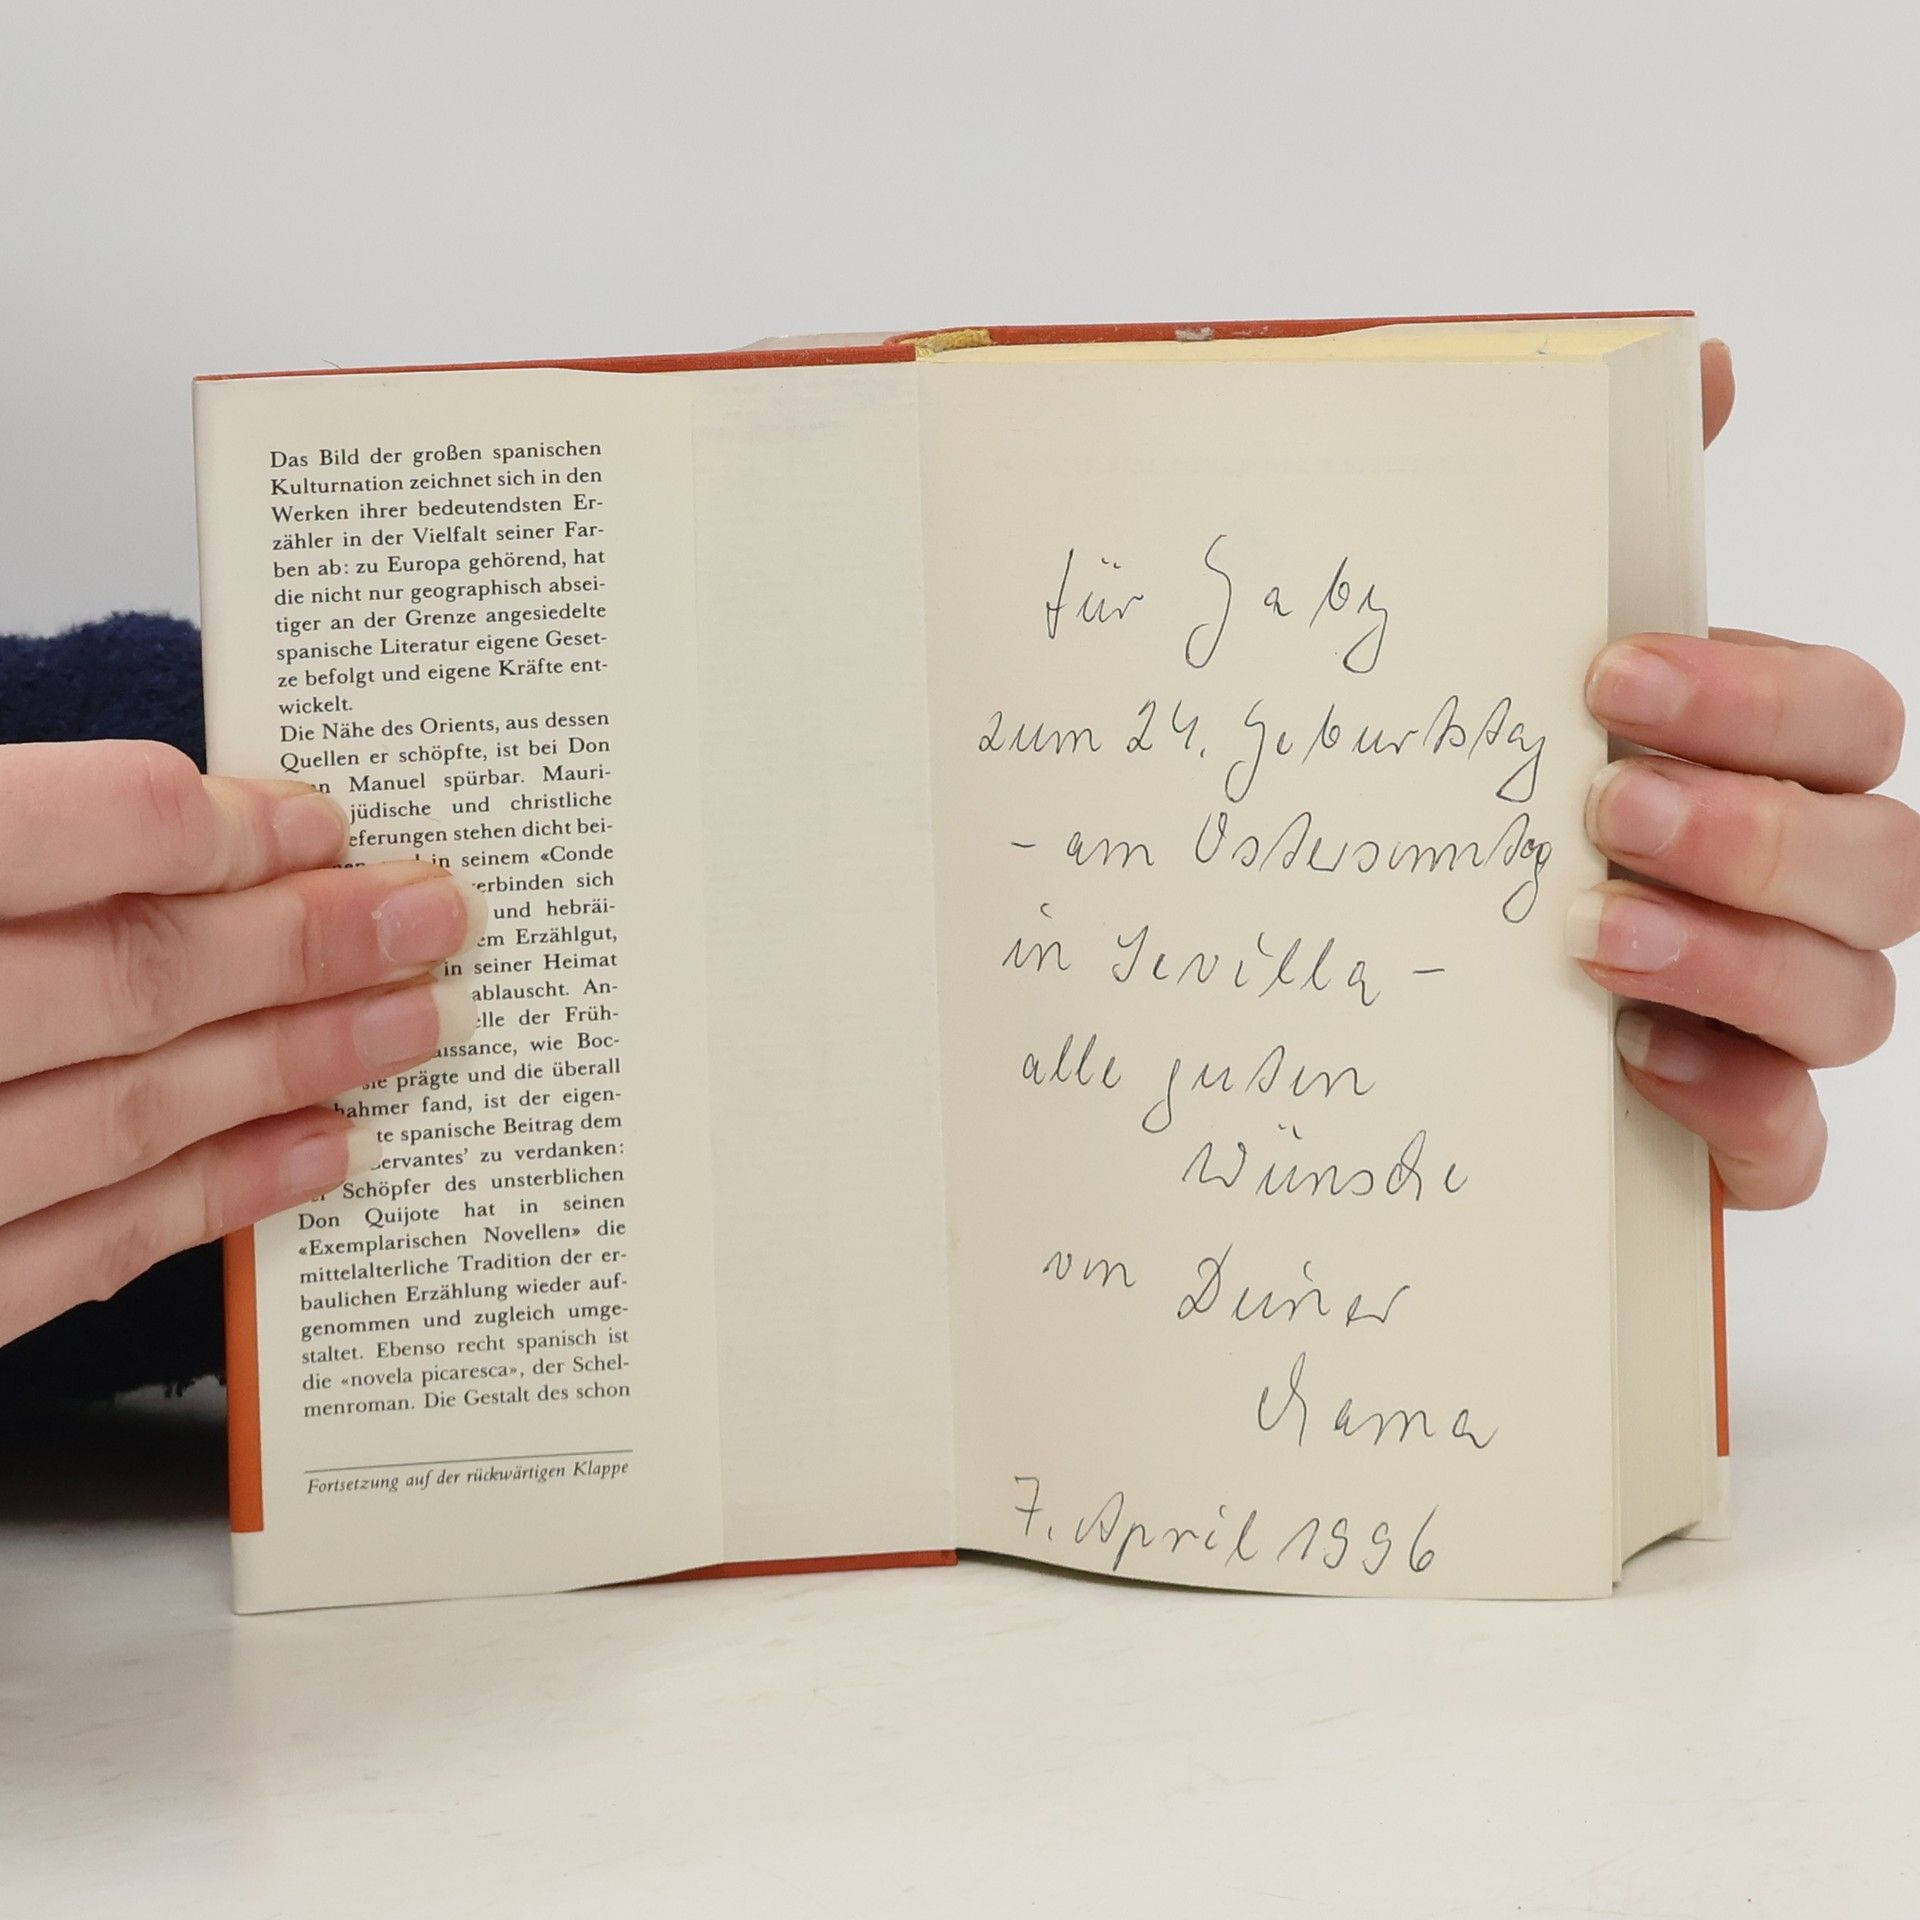 Das Bild der großen spanischen
Kulturnation zeichnet sich in den
Werken ihrer bedeutendsten Er-
zähler in der Vielfalt seiner Far-
ben ab: zu Europa gehörend, hat
die nicht nur geographisch absei-
tiger an der Grenze angesiedelte
spanische Literatur eigene Geset-
ze befolgt und eigene Kräfte ent-
wickelt.
Die Nähe des Orients, aus dessen
Quellen er schöpfte, ist bei Don
Manuel spürbar. Mauri-
jüdische und christliche
eferungen stehen dicht bei-
in seinem «Conde
erbinden sich
und hebräi-
em Erzählgut,
in seiner Heimat
ablauscht. An-
elle der Früh-
aissance, wie Boc-
sie prägte und die überall
hahmer fand, ist der eigen-
te spanische Beitrag dem
ervantes’ zu verdanken:
Schöpfer des unsterblichen
Don Quijote hat in seinen
«Exemplarischen Novellen» die
mittelalterliche Tradition der er-
baulichen Erzählung wieder auf-
genommen und zugleich umge-
staltet. Ebenso recht spanisch ist
die «novela picaresca», der Schel-
menroman. Die Gestalt des schon
Fortsetzung auf der rückwärtigen Klappe
für Gaby
zum 24. Geburtstag
- am Ostersonntag
in Sevilla -
alle guten
Wünsche
von Deiner
Mama
7. April 1996